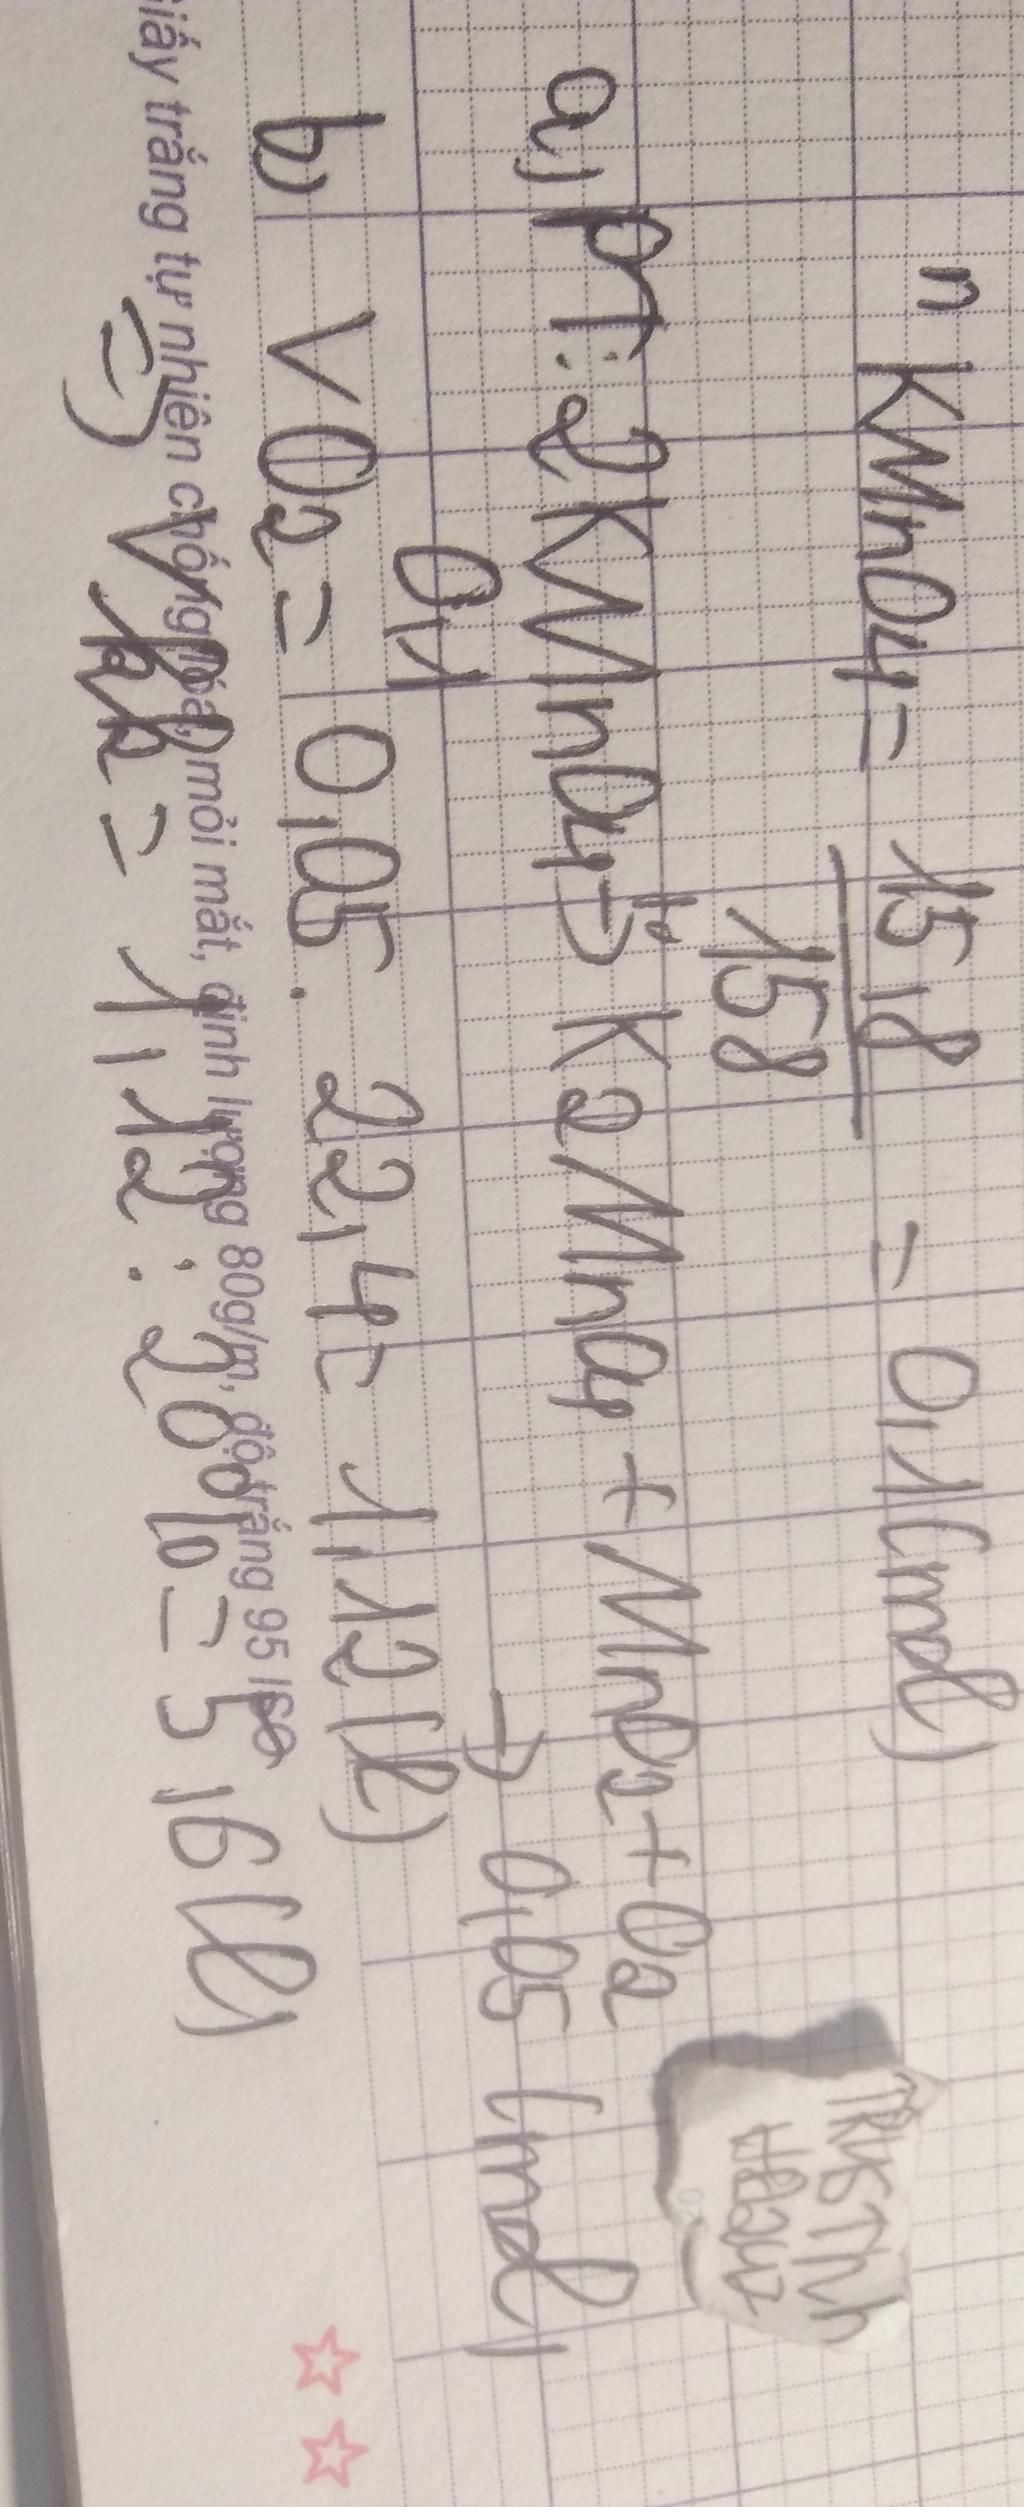 n KMnO4 = 15,8 / 158 = 0,1 (mol)
a) PT: 2KMnO4 -t°-> K2MnO4 + MnO2 + O2
0,1 → 0,05 (mol)
b) VO2 = 0,05 . 22,4 = 1,12 (l)
=) = 1,12 : 20% = 5,6 (l)
Giấy trắng tự nhiên chống lóa, mỏi mắt, định lượng 80g/m, độ trắng 95 ISO